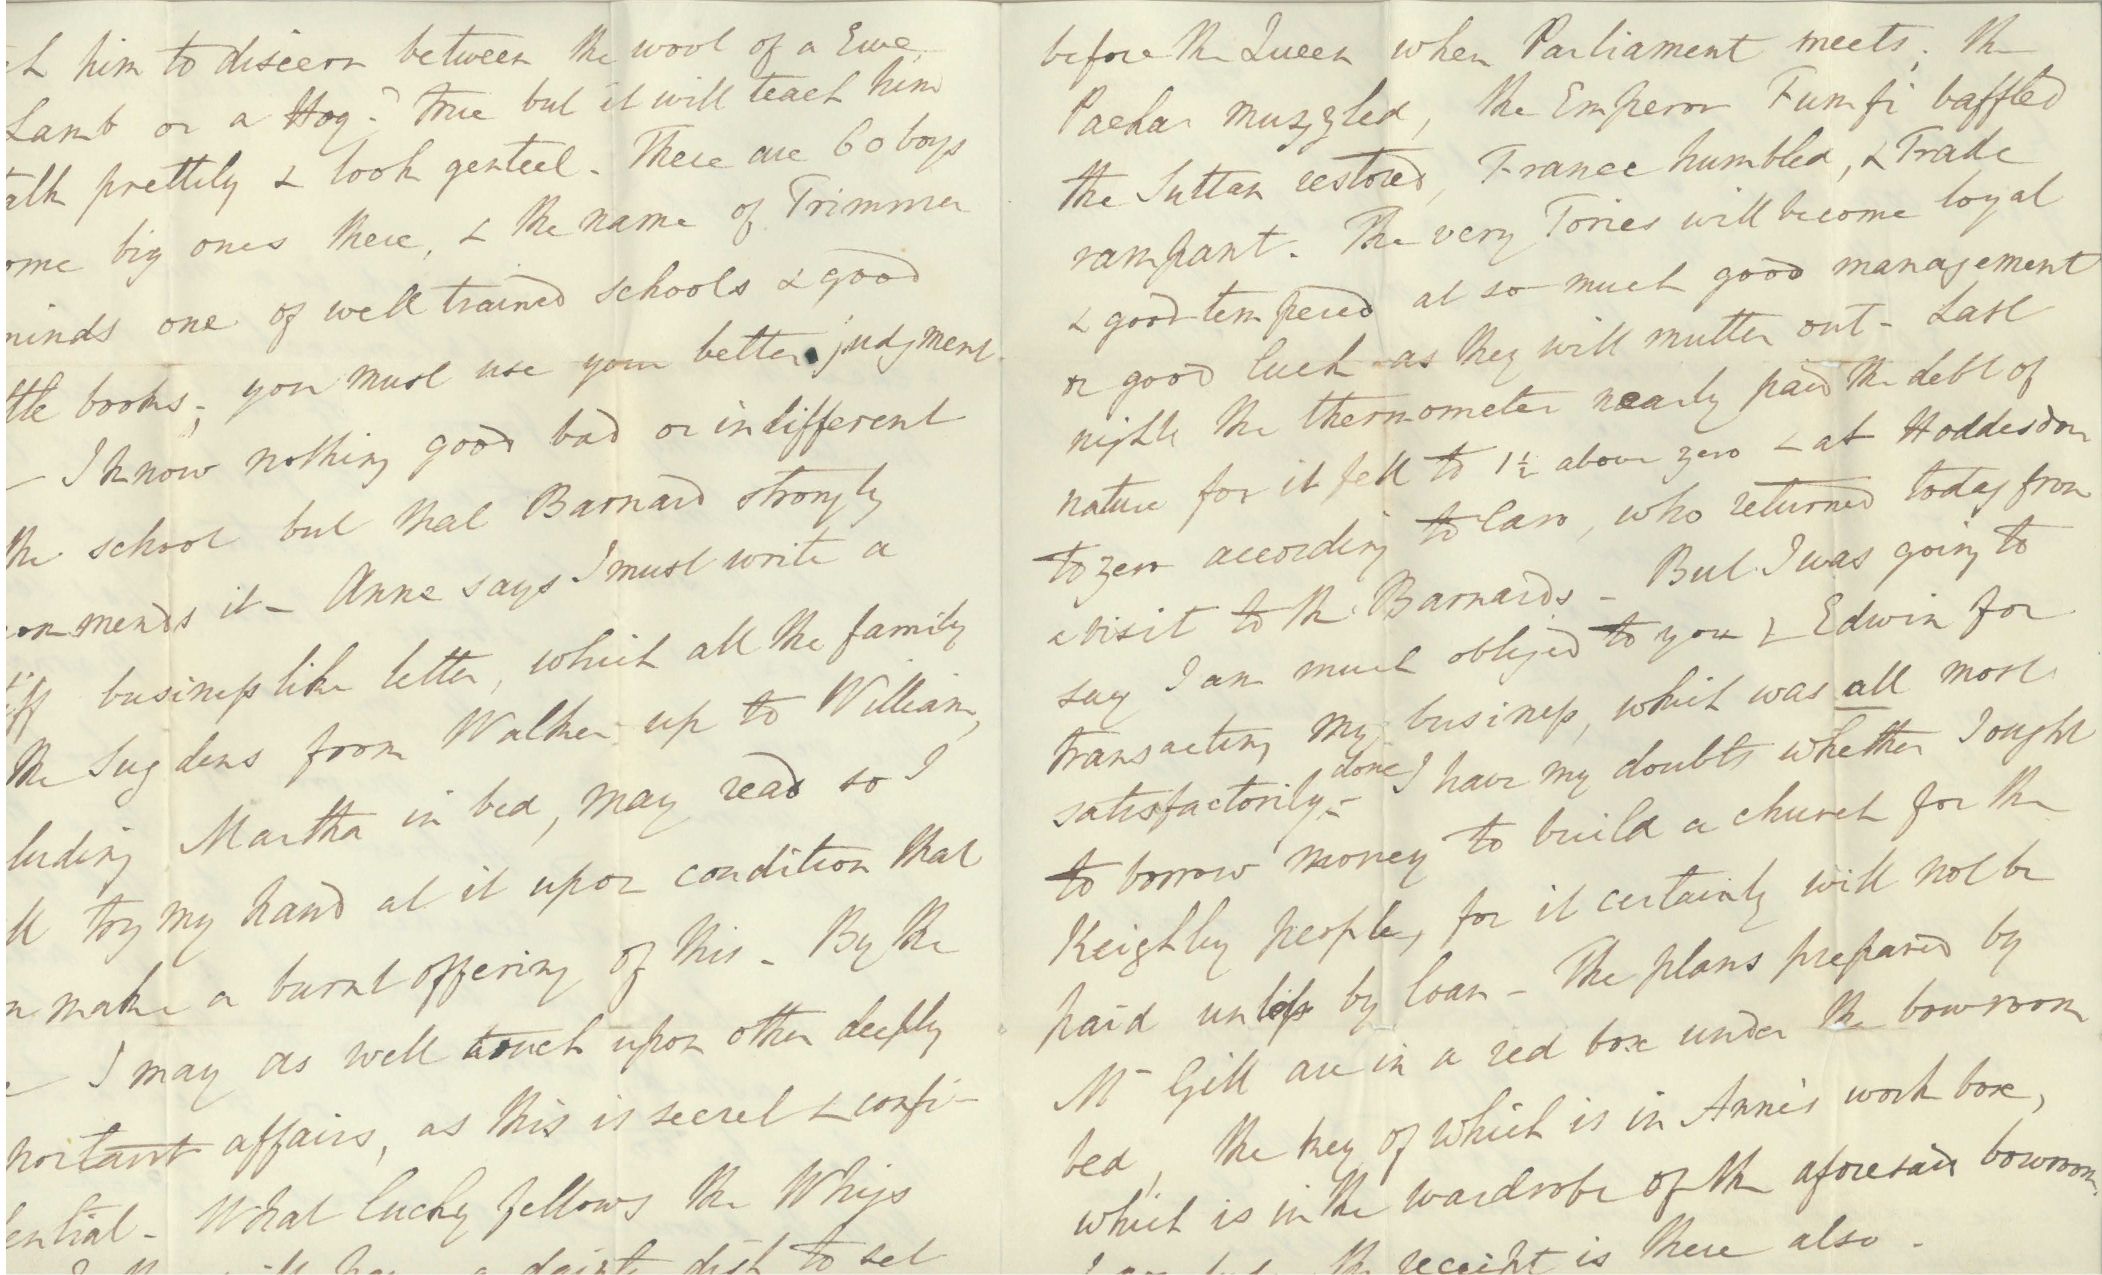 him to discern between the wool of a Ewe,
Lamb or a Hog? True but it will teach him
talk prettily & look genteel - There are 60 boys
some big ones there, & the name of Trimmer
minds one of well trained schools & good
little books; you must use your better judgment
- I know nothing good bad or indifferent
the school but that Barnard strongly
commends it - Anne says I must write a
stiff business like letter, which all the family
the Sugdens from Walker up to William,
luding Martha in bed, may read so I
ll try my hand at it upon condition that
make a burnt offering of this - By the
- I may as well touch upon other deeply
portant affairs, as this is secret & confi-
dential - What lucky fellows the Whigs
a dainty dish to set
before the Queen when Parliament meets; the
Pacha muzzled, the Emperor Fumfi baffled
the Sultan restored, France humbled, & Trade
rampant. The very Tories will become loyal
& good tempered at so much good management
or good luck as they will mutter out - Last
night the thermometer nearly paid the debt of
nature for it fell to 1½ above zero & at Hoddesdon
to zero according to Caro, who returned today from
a visit to the Barnards - But I was going to
say I am much obliged to you & Edwin for
transacting my business, which was all most
satisfactorily done - I have my doubts whether I ought
to borrow money to build a church for the
Keighley people, for it certainly will not be
paid unless by loan - The plans prepared by
Mr Gill are in a red box under the bowroom
bed, the key of which is in Anne's work box,
which is in the wardrobe of the aforesaid bowroom.
the receipt is there also -